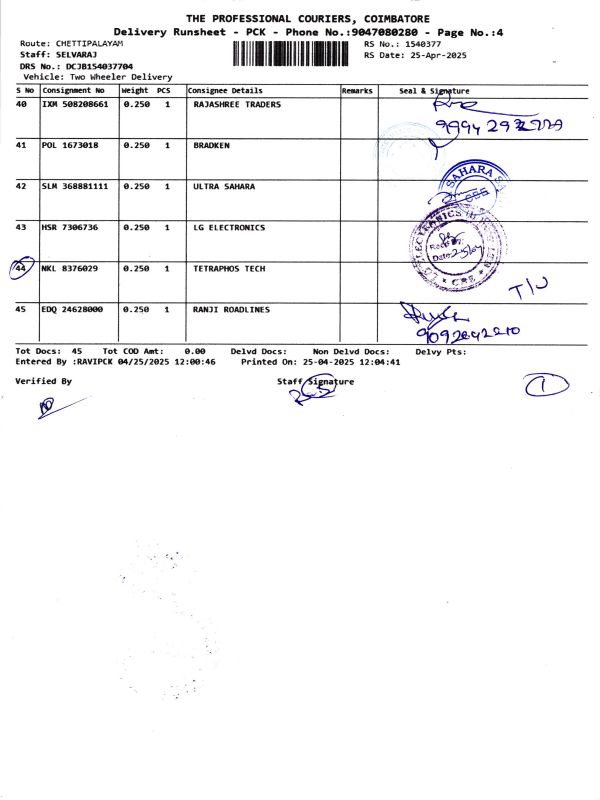 THE PROFESSIONAL COURIERS, COIMBATORE
Delivery Runsheet - PCK - Phone No.:9047080280 - Page No.:4
Route: CHETTIPALAYAM RS No.: 1540377
Staff: SELVARAJ RS Date: 25-Apr-2025
DRS No.: DCJB154037704
Vehicle: Two Wheeler Delivery
S No Consignment No Weight PCS Consignee Details Remarks Seal & Signature
40 IXM 508208661 0.250 1 RAJASHREE TRADERS
41 POL 1673018 0.250 1 BRADKEN
42 SLM 368881111 0.250 1 ULTRA SAHARA SAHARA
43 HSR 7306736 0.250 1 LG ELECTRONICS
44 NKL 8376029 0.250 1 TETRAPHOS TECH
T/U
45 EDQ 24628000 0.250 1 RANJI ROADLINES
9092642210
Tot Docs: 45 Tot COD Amt: 0.00 Delvd Docs: Non Delvd Docs: Delvy Pts:
Entered By :RAVIPCK 04/25/2025 12:00:46 Printed On: 25-04-2025 12:04:41
Verified By Staff Signature 1